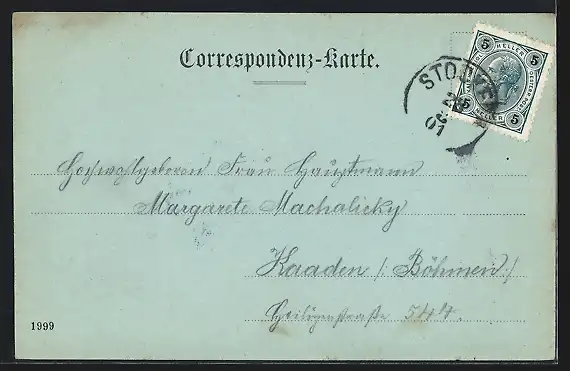 Correspondenz-Karte.
5 HELLER 5
5 HELLER 5
STOCKE
01
Hochwohlgeboren Frau Hauptmann
Margarete Machalicky
Kaaden /: Böhmen :/
Heiligenstraße 544.
1999